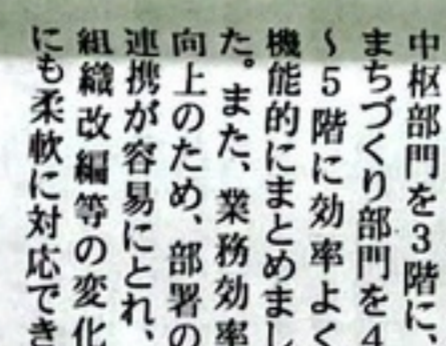 中枢部門を3階に、
まちづくり部門を4
〜5階に効率よく
機能的にまとめまし
た。また、業務効率
向上のため、部署の
連携が容易にとれ、
組織改編等の変化
にも柔軟に対応でき